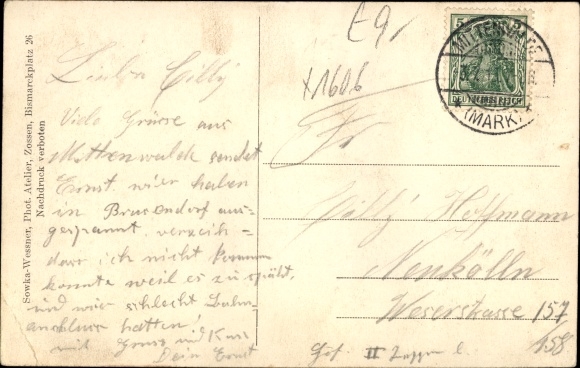 Sowka-Wessner, Phot. Atelier, Zossen, Bismarckplatz 26
Nachdruck verboten
Liebe Cilly
Viele Grüsse aus
Mittenwalde sendet
Ernst. wier haben
in Brusendorf aus=
gespannt, verzeih=
dass ich nicht kommen
konnte weil es zu spät,
und wier schlecht Bahn=
anschluss hatten!
mit Gruss und Kuss
Dein Ernst
E9
x1606
5
DEUTSCHES REICH
MITTENWALDE
(MARK)
Fr
Cilly Hoffmann
Neukölln
Weserstrasse 157
158
II l.